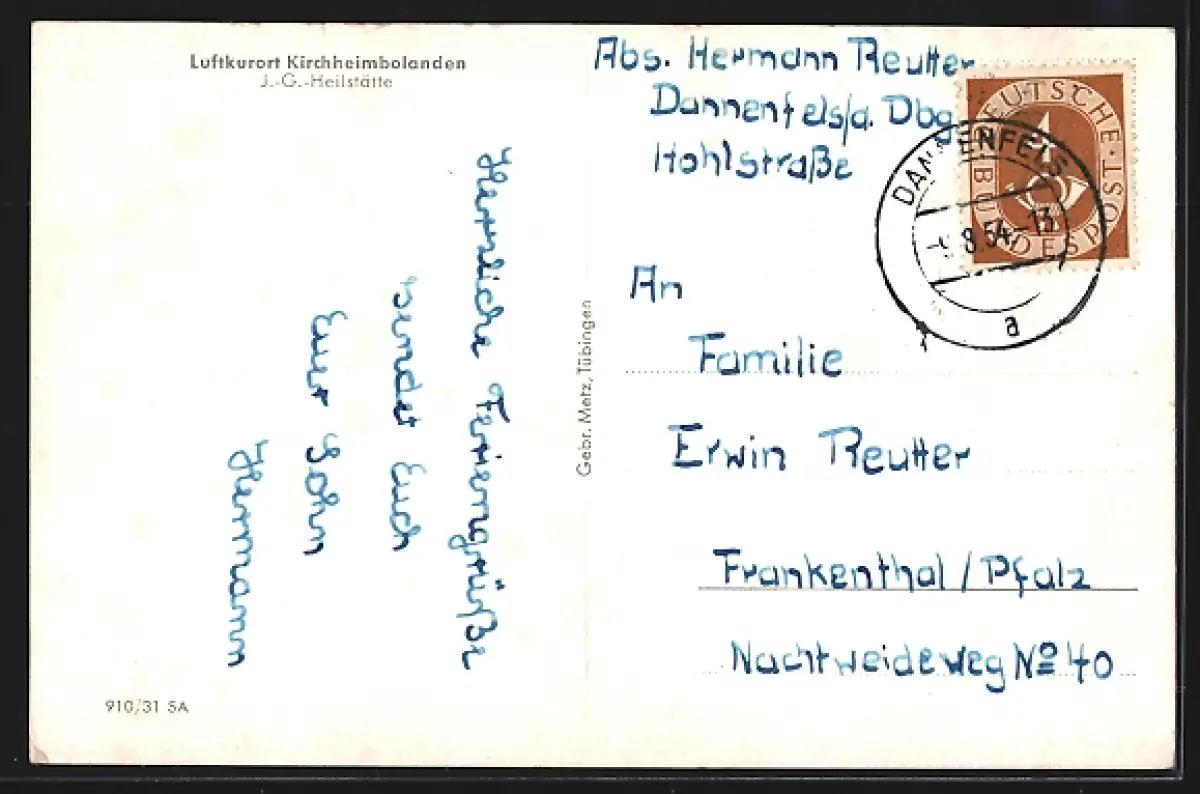 Luftkurort Kirchheimbolanden
J.-G.-Heilstätte
Herzliche Feriengrüße
sendet Euch
Euer Sohn
Hermann
910/31 SA
Gebr. Metz, Tübingen
Abs. Hermann Reutter
Dannenfels/a. Dbg
Hohlstraße
DEUTSCHE BUNDESPOST
DANNENFELS
8.54-13
a
An
Familie
Erwin Reutter
Frankenthal/Pfalz
Nachtweideweg No 40